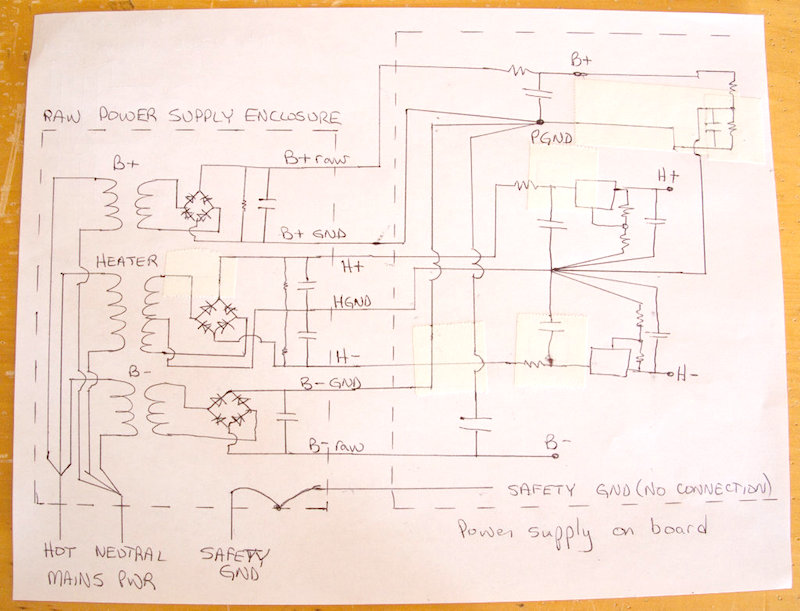 B+
RAW POWER SUPPLY ENCLOSURE
B+
B+raw
PGND
H+
B+ GND
HEATER
H+
HGND
H-
B-
B- GND
H-
B-raw
B-
SAFETY GND (NO CONNECTION)
Power supply on board
HOT NEUTRAL
MAINS PWR
SAFETY
GND